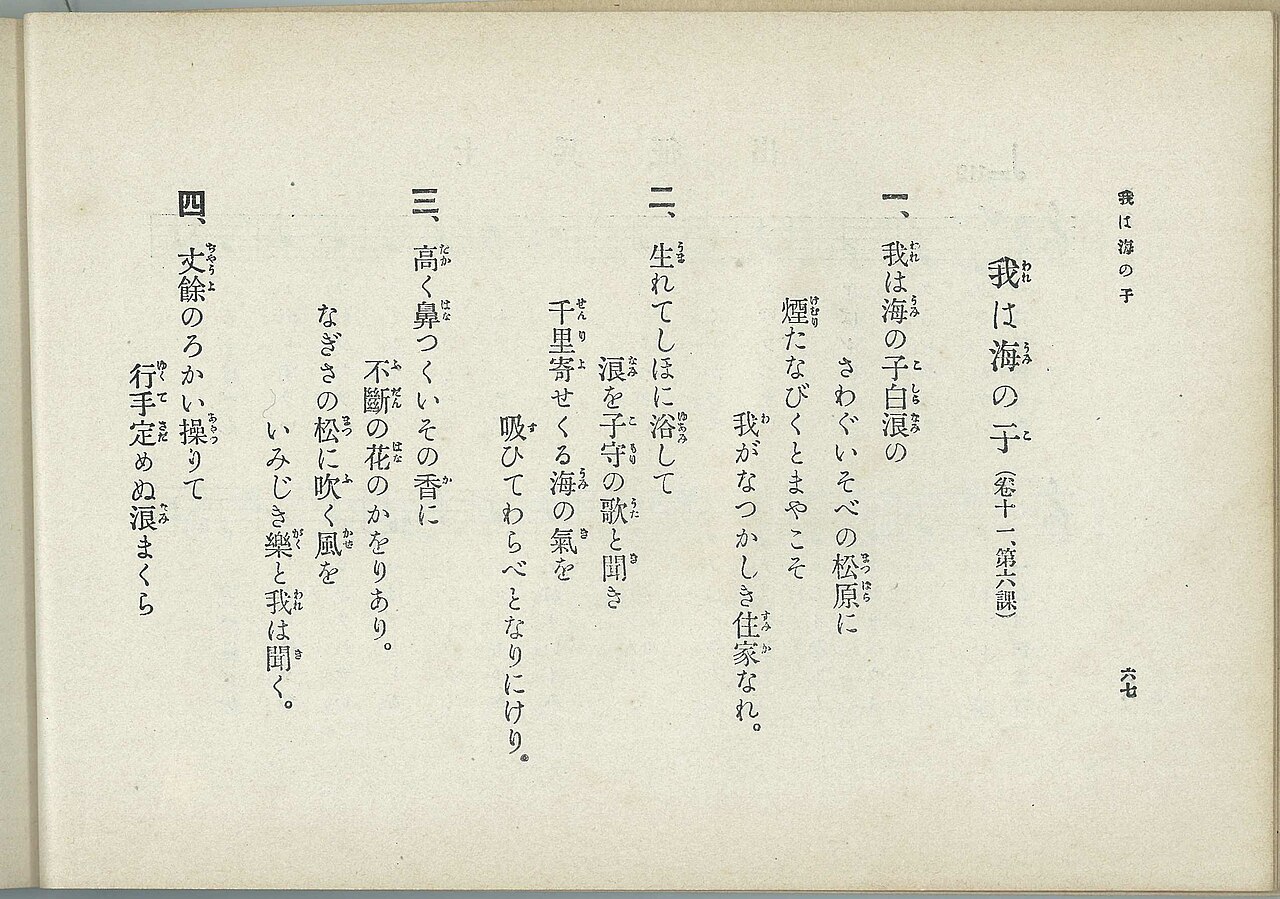 我は海の子
六七
我は海の子(卷十一、第六課)
一、我は海の子白浪の
さわぐいそべの松原に
煙たなびくとまやこそ
我がなつかしき住家なれ。
二、生れてしほに浴して
浪を子守の歌と聞き
千里寄せくる海の氣を
吸ひてわらべとなりにけり。
三、高く鼻つくいその香に
不斷の花のかをりあり。
なぎさの松に吹く風を
いみじき樂と我は聞く。
四、丈餘のろかい操りて
行手定めぬ浪まくら